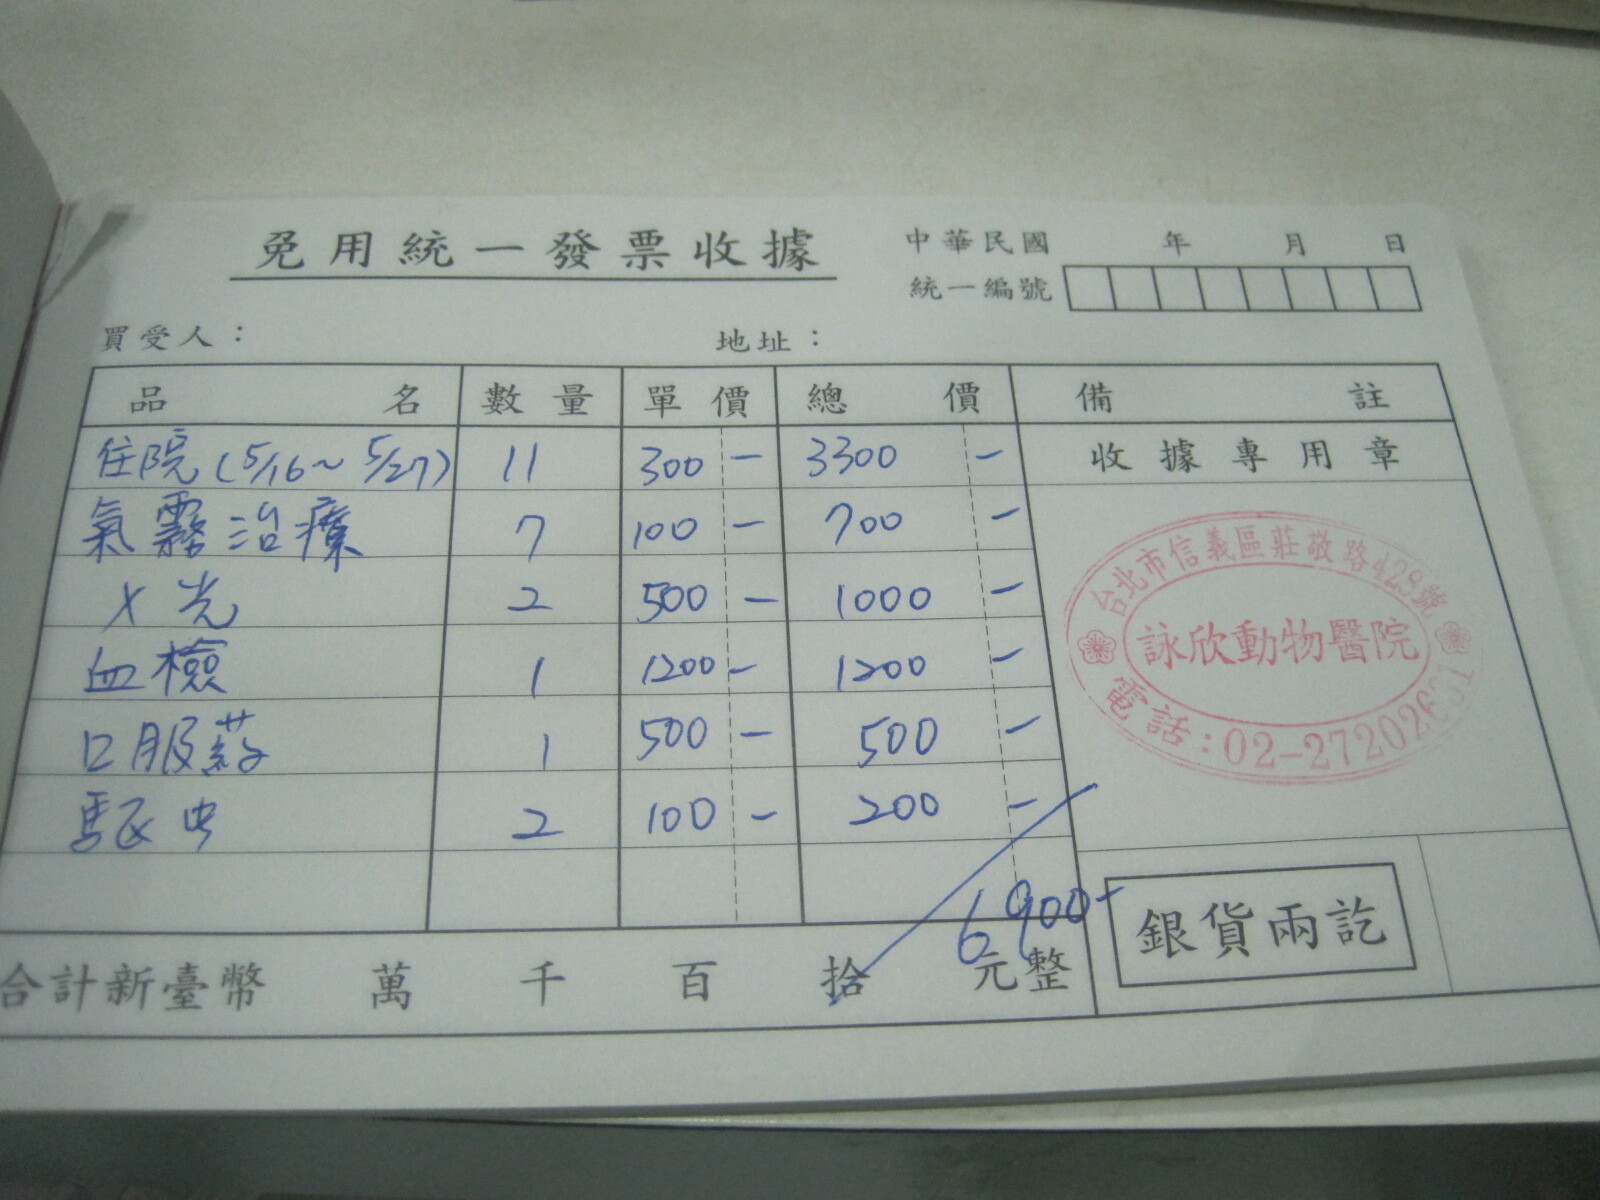 免用統一發票收據
中華民國 年 月 日
統一編號
買受人： 地址：
品名 數量 單價 總價 備註
收據專用章
住院(5/16~5/27) 11 300- 3300-
氣霧治療 7 100- 700-
X光 2 500- 1000-
血檢 1 1200- 1200-
口服药 1 500- 500-
驅虫 2 100- 200-
台北市信義區莊敬路423號
詠欣動物醫院
電話：02-272026
6900-
合計新臺幣 萬 千 百 拾 元整
銀貨兩訖